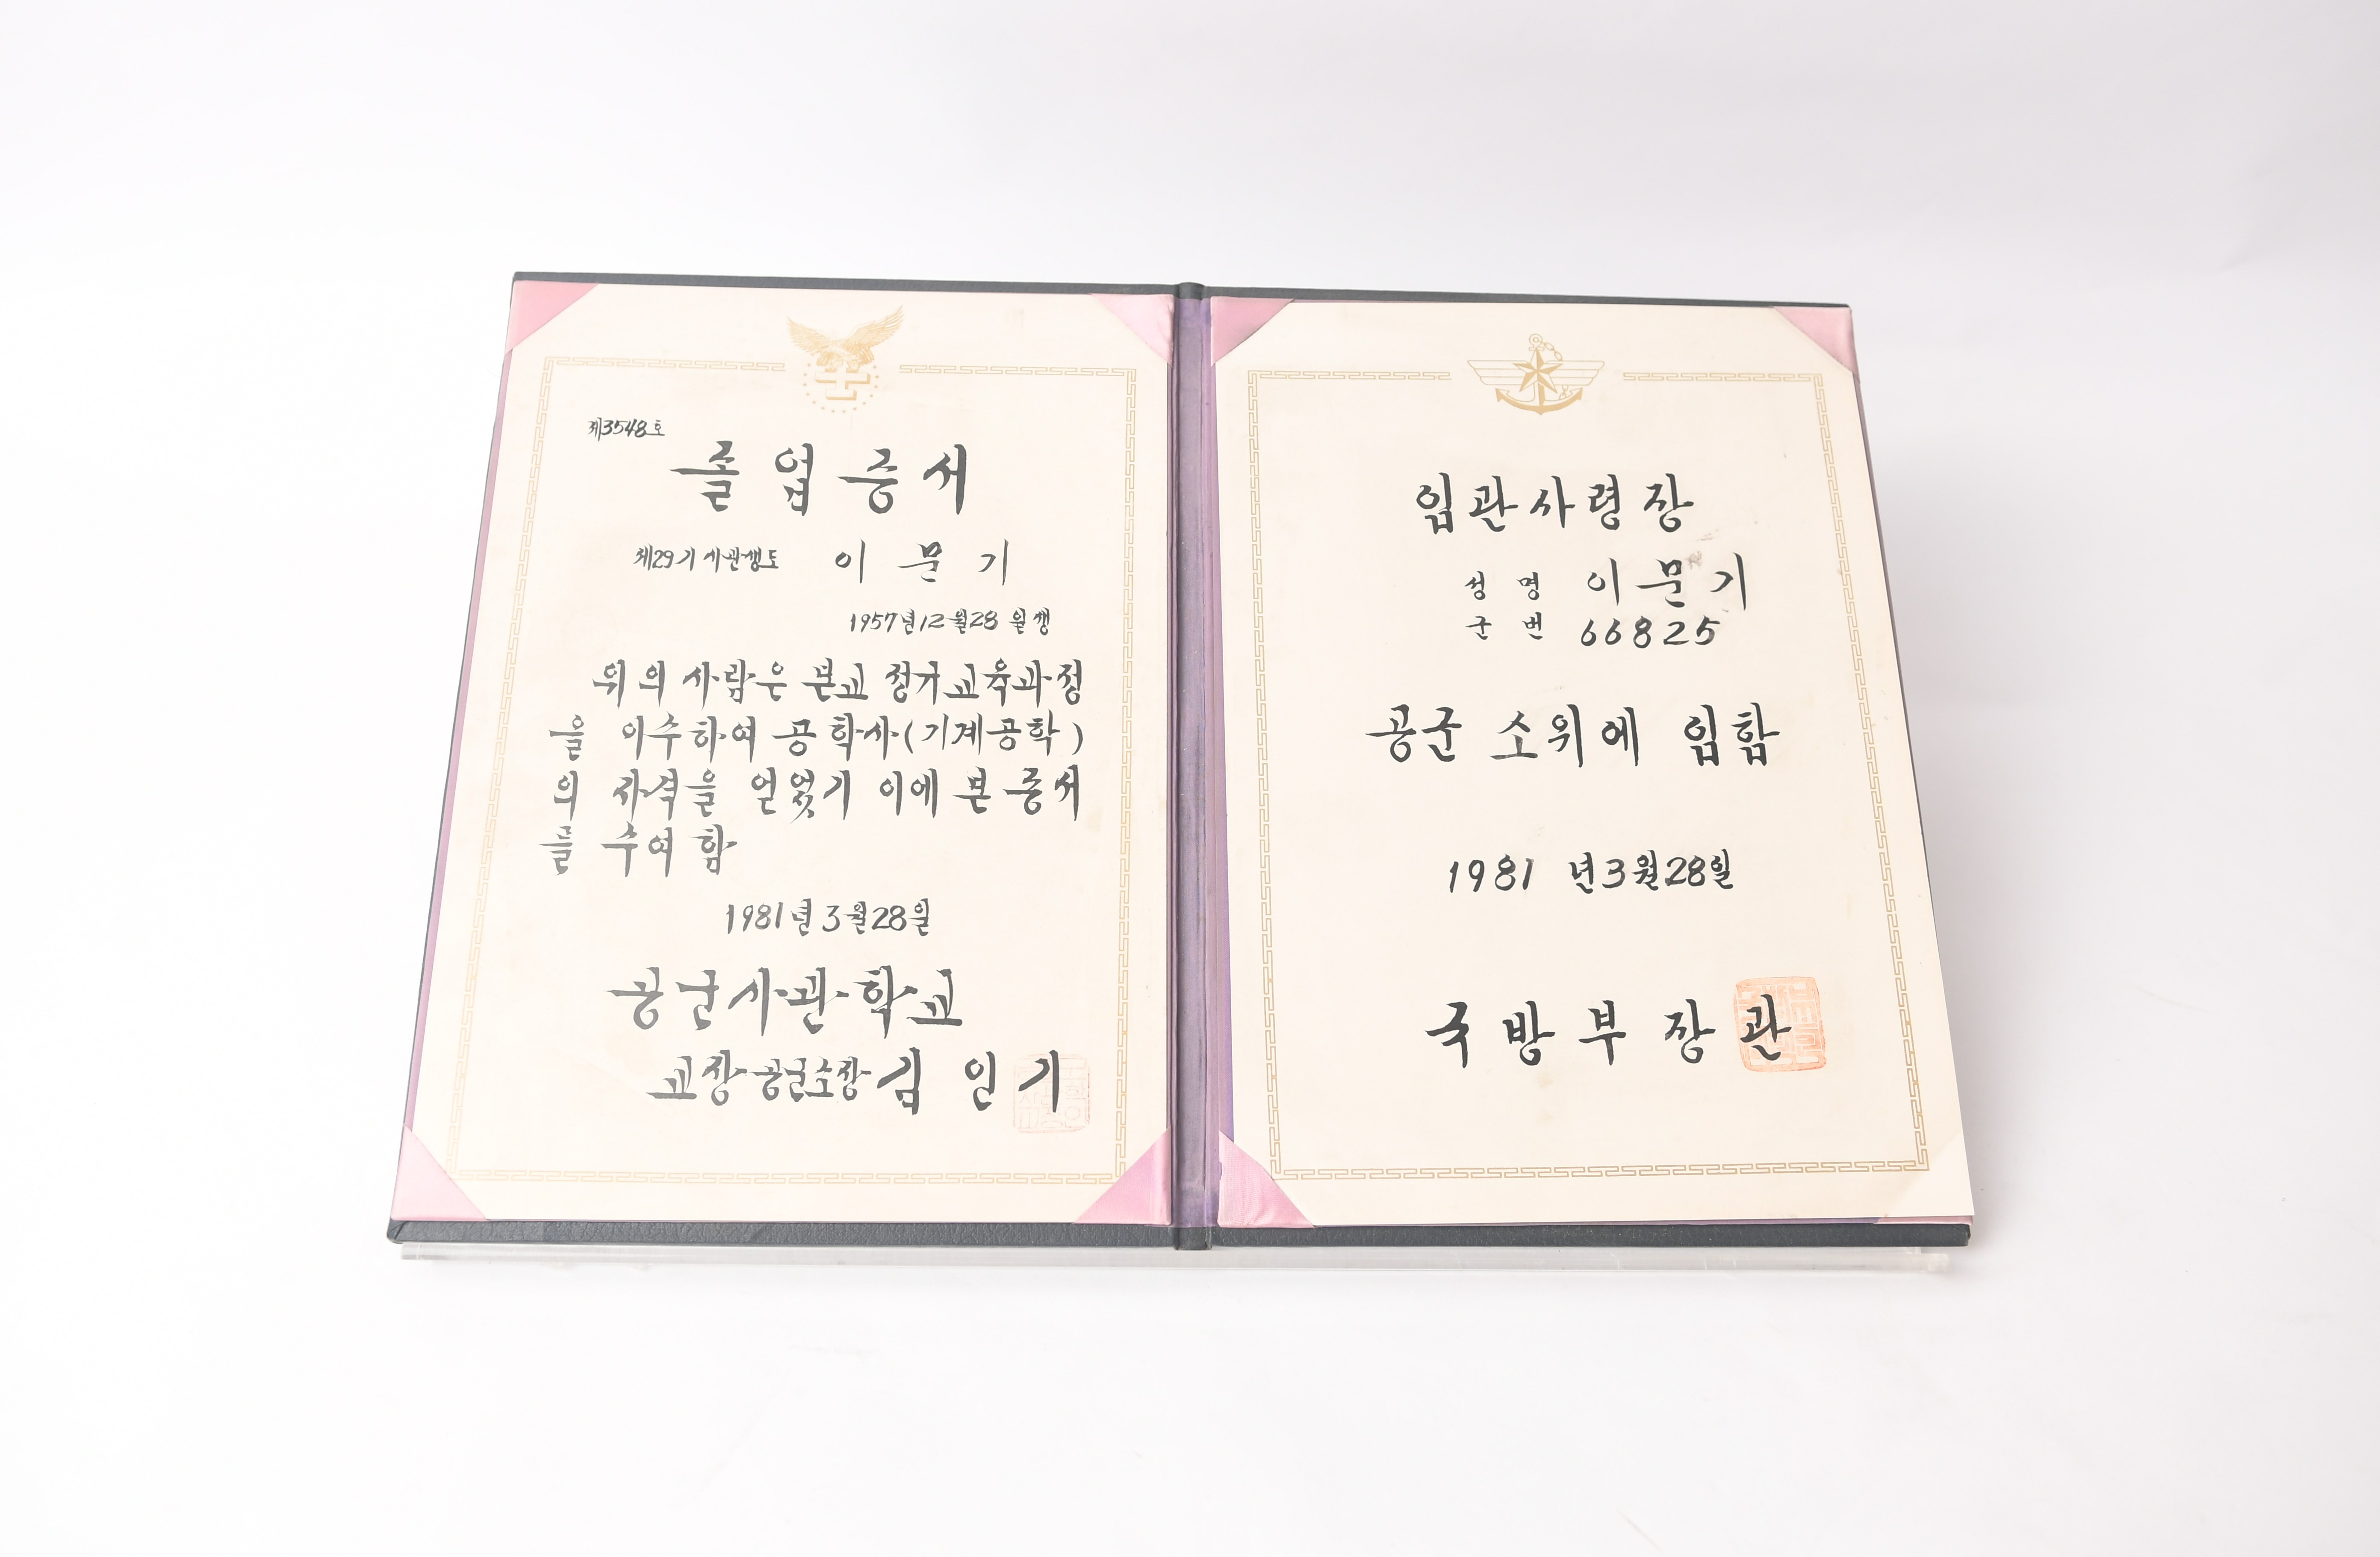 제3548호
졸업증서
제29기 사관생도 이문기
1957년12월28일생
위의 사람은 본교 정규교육과정
을 이수하여 공학사(기계공학)
의 자격을 얻었기 이에 본 증서
를 수여함
1981년3월28일
공군사관학교
교장공군소장 김인기
임관사령장
성명 이문기
군번 66825
공군 소위에 임함
1981년3월28일
국방부장관